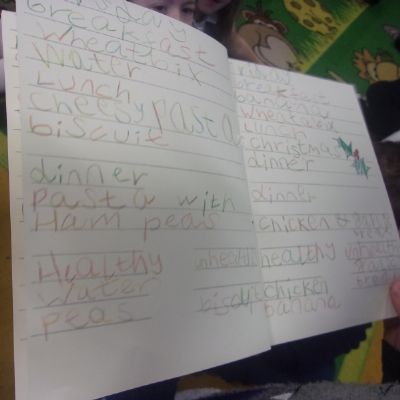 breakfast
wheatbix
water
Lunch
cheesy pasta
biscuit
dinner
pasta with
Ham peas
Healthy
water
peas
unhealthy
biscuit
banana
Lunch
christmas
dinner
dinner
chicken & garlic
healthy
chicken
banana